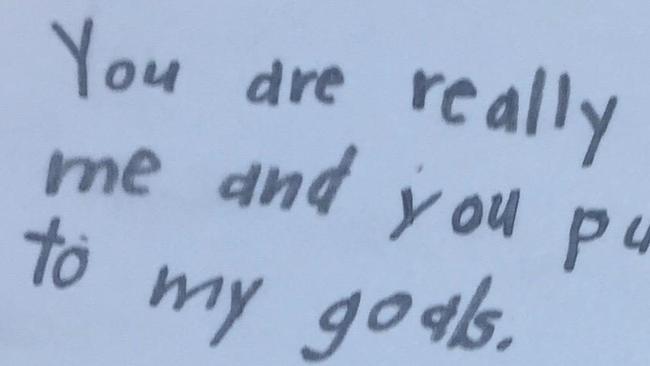 You are really
me and you pu
to my goals.